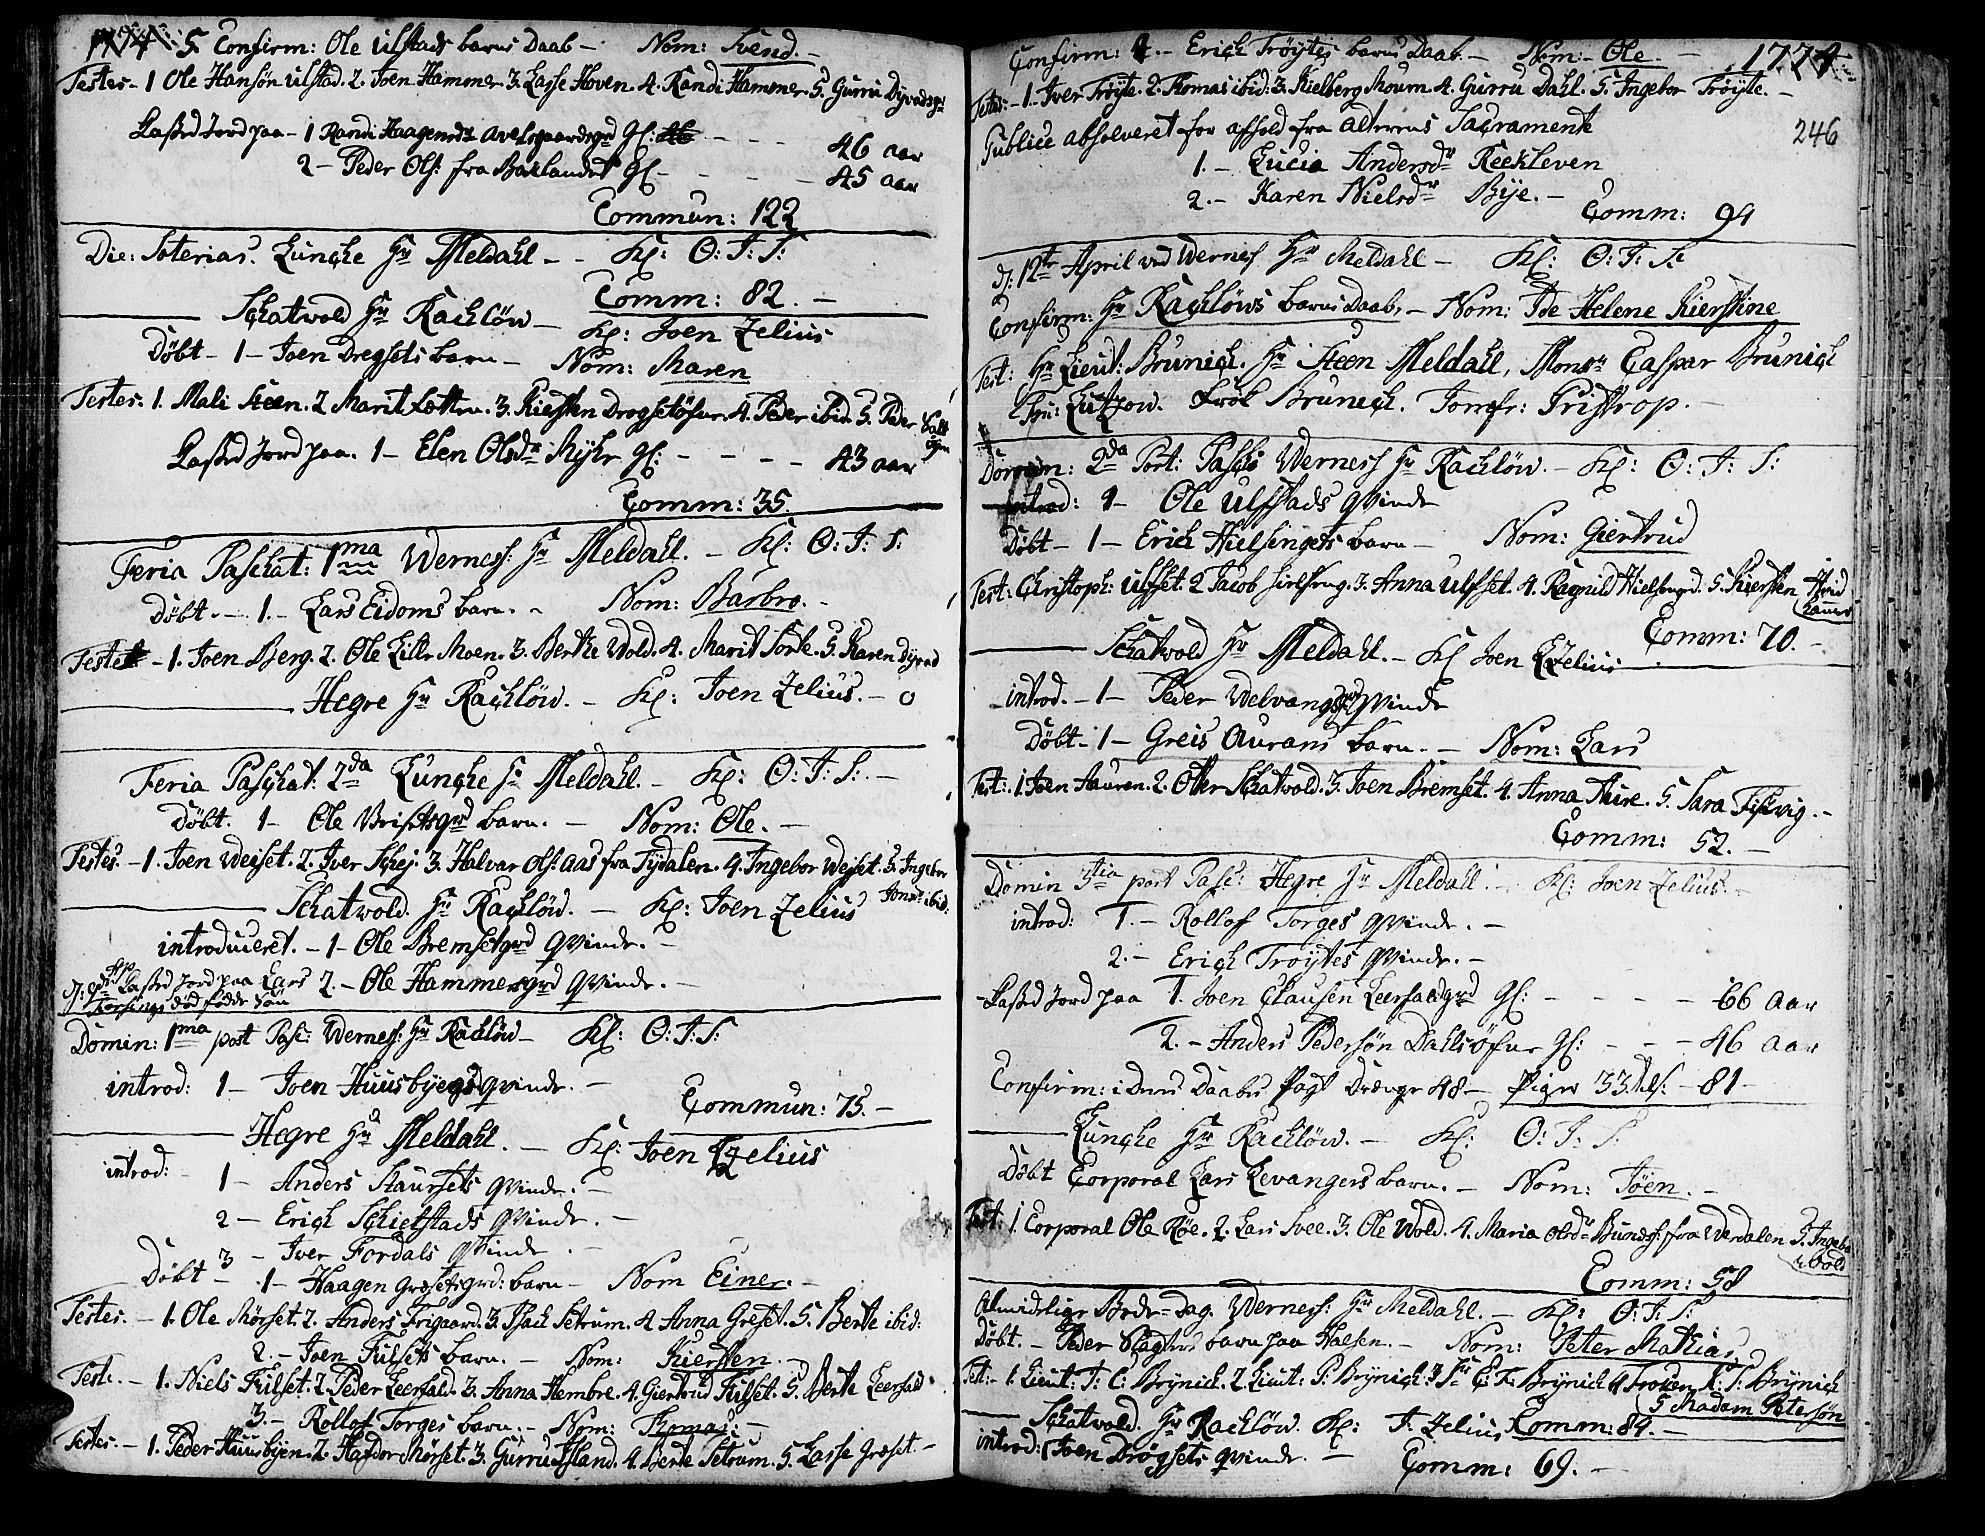 1774 5 Confirm: Ole Ulstads barns Daab – Nom: Svend. –
Testes – 1 Ole Hansøn Ulstad. 2. Joen Hammer. 3. Lasse Hoven. 4. Randi Hammer. 5. Gurru Dyvadsgr
Kasted Jord paa – 1 Randi Haagensdr Avelsgaardsgrd gl: – – – 46 aar
2 – Peder Ols: fra Baklandet gl – – – – 45 aar
Commun: 122
Die: Soterias. Lunche Hr Meldahl – – Kl: O: J: S:
Comm: 82. –
Schatvold Hr Rachlöw – Kl: Joen Zelius
Døbt – 1 – Joen Dregsets barn – Nom: Maren
Testes. 1. Mali Steen. 2 Marit 3. Kiersten Drogsetøfne. 4. Peder ibid. 5. Peder
Kasted Jord paa. 1 – Elen Olsdr Myhr gl: – – – – 43 aar
Comm: 35.
Feria Paschat: 1ma Wernes: Hr Meldahl. – Kl: O: J: S:
Døbt. – 1. – Lars Eidoms barn. – Nom: Barbro. –
Testes – 1. Joen Berg. 2. Ole Lille Moen. 3. Berthe Wold. 4. Marit Sorte. 5. Karen Dyvad
Hegre Hr Rachlöw. – Kl: Joen Zelius. – 0
Feria Paschat: 2da Lunche Hr Meldahl. – Kl: O: J: S: –
Døbt. 1 – Ole Vrisetsgrd barn. – Nom: Ole. –
Testes. – 1. Joen Weiset. 2. Iver Schej. 3. Halvar Ols: Aas fra Tydalen. 4. Ingebor Weiset. 5. Ingebor
Jonsdr ibid:
Schatvold. Hr Rachlöw. – Kl: Joen Zelius
introduceret. – 1 – Ole Bremsetgrd qvinde. –
2. – Ole Hammersgrd qvinde. –
d: 9de Ap Kasted Jord paa Lars
død fødde Søn
Domin: 1ma post Pasc: Wernes: Hr Rachlöw – Kl: O: J: S:
introd: 1 – Joen Huusbyegrd qvinde. –
Commun: 75. –
Hegre Hr Meldahl. – Kl: Joen Zelius
introd: – 1 – Anders Staursets qvinde. –
2 – Erich Schietstads qvinde. –
3 – Iver Fordals qvinde. –
Døbt – 1 – Haagen Græsetsgrd: barn – Nom Einer. –
Testes. – 1. Ole Mörset. 2. Anders Frigaard. 3. Isach Setrum. 4 Anna Greset. 5. Berte ibid:
2. – Joen Fulsets barn. – Nom: Kiersten. –
Test: – 1. Niels Fulset. 2. Peder Leersald. 3. Anna Hembre. 4. Giertrud Fulset. 5. Berte Leersald
3. – Rollof Forges barn. – Nom: Thomas. –
Testes. – 1. Peder Huusbyen. 2. Hafdor Mörset. 3. Gurru Island. 4. Berte Setrum. 5. Lasse Græset –
Confirm: 4. – Erich Tröytes barns Daab. – Nom: Ole. – 1774
Testes: – 1. Iver Tröyte. 2. Thomas ibid: 3. Kielberg Moum 4. Gurru Dahl. 5. Ingebor Tröyte. –
Publice absolveret for afhold fra alterens Sacramente 246
1. – Lucia Andersdr Reekleven
2. – Karen Nielsdr Bye. –
Comm: 94
d: 12te April ved Wernes Hr Meldahl – Kl: O: J: S:
Confirm: Hr Rachlöws barns Daab, – Nom: Ide Helene Kierstine
Test: Hr Lieut: Brunich. Hr Steen Meldahl, Monsr Caspar Brunich
Fru: Lützow. Frök Brunich. Jomfr: Pristrop. –
Domin: 2da Post: Pasch: Wernes Hr Rachlöw. – Kl: O: J: S:
introd: 1 – Ole Ulstads qvinde
Døbt – 1 – Erich Hielsengets barn – Nom: Giertrud
Test: Christoph: Ulfset. 2 Jacob 3. Anna Ulfset. 4. Ragnild Hielsengrd. 5. Kiersten Hvid
hammer
Comm: 70. –
Schatvold Hr Meldahl. – Kl Joen Zelius
introd. – 1 – Peder Welvangsgrd qvinde
Døbt – 1 – Greis Aurans barn. – – Nom: Lars
Test: 1. Joen Auren. 2. Otter Schatvold. 3. Joen Bremset. 4. Anna Aure. 5. Sara Fischvig. –
Comm: 52. –
Domin 3tia post Pasc: Hegre Hr Meldahl. – Kl: Joen Zelius. –
introd: 1. – Rollof Forges qvinde. –
2. – Erich Tröytes qvinde. –
Kasted Jord paa 1. Joen Clausen Leersaldgrd gl: – – – – – 66 aar
2. – Anders Pedersøn Dahlsöfne gl: – – – 46 aar
Confirm: i deres Daabes Pagt Drenge 48 – Piger 33 tils: – 81 –
Lunche Hr Rachlöw. – Kl: O: J: S:
Døbt Corporal Lars Levangers barn. – Nom: Jöen. –
Test: 1. Corporal Ole Röe. 2. Lars Svee. 3. Ole Wold. 4. Maria Olsdr fra Werdalen 5. Ingebor
Wold
Comm: 58
Almindelige Bede-Dag. Wernes: Hr Meldahl. – Kl: O: J: S:
Døbt. – Peder Slagters barn paa Halsen. – Nom: Peter Mathias
Test: – 1. Lieut: J: C: Brynich. 2 Lieut: P: Brynich. 3 Fr C: F: Brynich 4 Froken K: S: Brynich
5 Madam Petersön
Schatvold. Hr Rachlöw. Kl: J. Zelius. Comm: 89. –
introd: Joen Drögsets qvinde. – Comm: 69. –